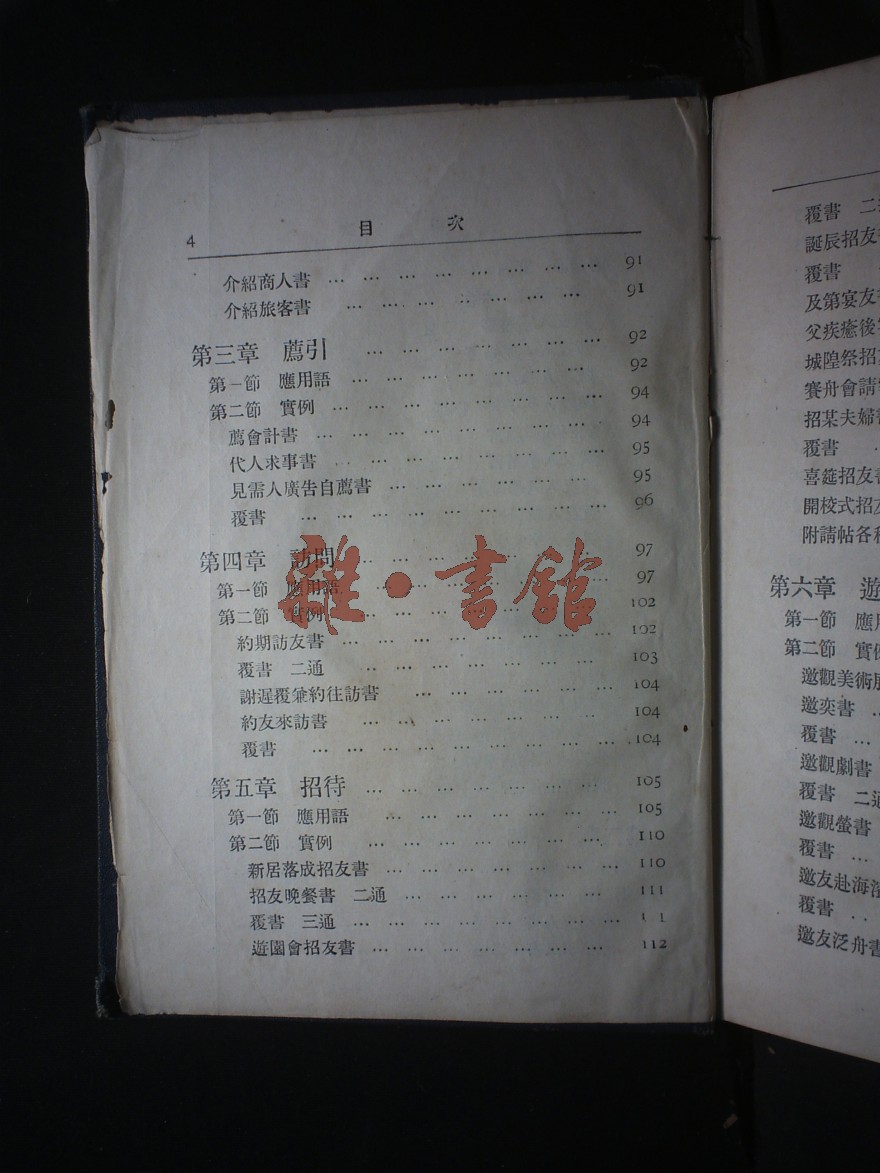 4 目 次
介紹商人書 … … … … … … … … 91
介紹旅客書 … … … … … … … 91
第三章 薦引 … … … … … … … 92
第一節 應用語 … … … … … … … … 92
第二節 實例 … … … … … … … … 94
薦會計書 … … … … … … … … 94
代人求事書 … … … … … … … … 95
見需人廣告自薦書 … … … … … … 95
覆書 … … … … … … … … … 96
第四章 訪問 … … … … … … … 97
第一節 應用語 … … … … … … … … 97
第二節 實例 … … … … … … … … 102
約期訪友書 … … … … … … … … 102
覆書 二通 … … … … … … … 103
謝遲覆兼約往訪書 … … … … … … 104
約友來訪書 … … … … … … … 104
覆書 … … … … … … … … … 104
第五章 招待 … … … … … … … … 105
第一節 應用語 … … … … … … … 105
第二節 實例 … … … … … … … 110
新居落成招友書 … … … … … … … 110
招友晚餐書 二通 … … … … … … 111
覆書 三通 … … … … … … …
遊園會招友書 … … … … … … … 112
雜·書館
覆書 二
誕辰招友
覆書
及第宴友
父疾癒後
城隍祭招
賽舟會請
招某夫婦
覆書
喜筵招友
開校式招
附請帖各
第六章 遊
第一節 應
第二節 實
邀觀美術
邀奕書 …
覆書 …
邀觀劇書
覆書 二
邀觀螢書
覆書 …
邀友赴海
覆書 …
邀友泛舟書